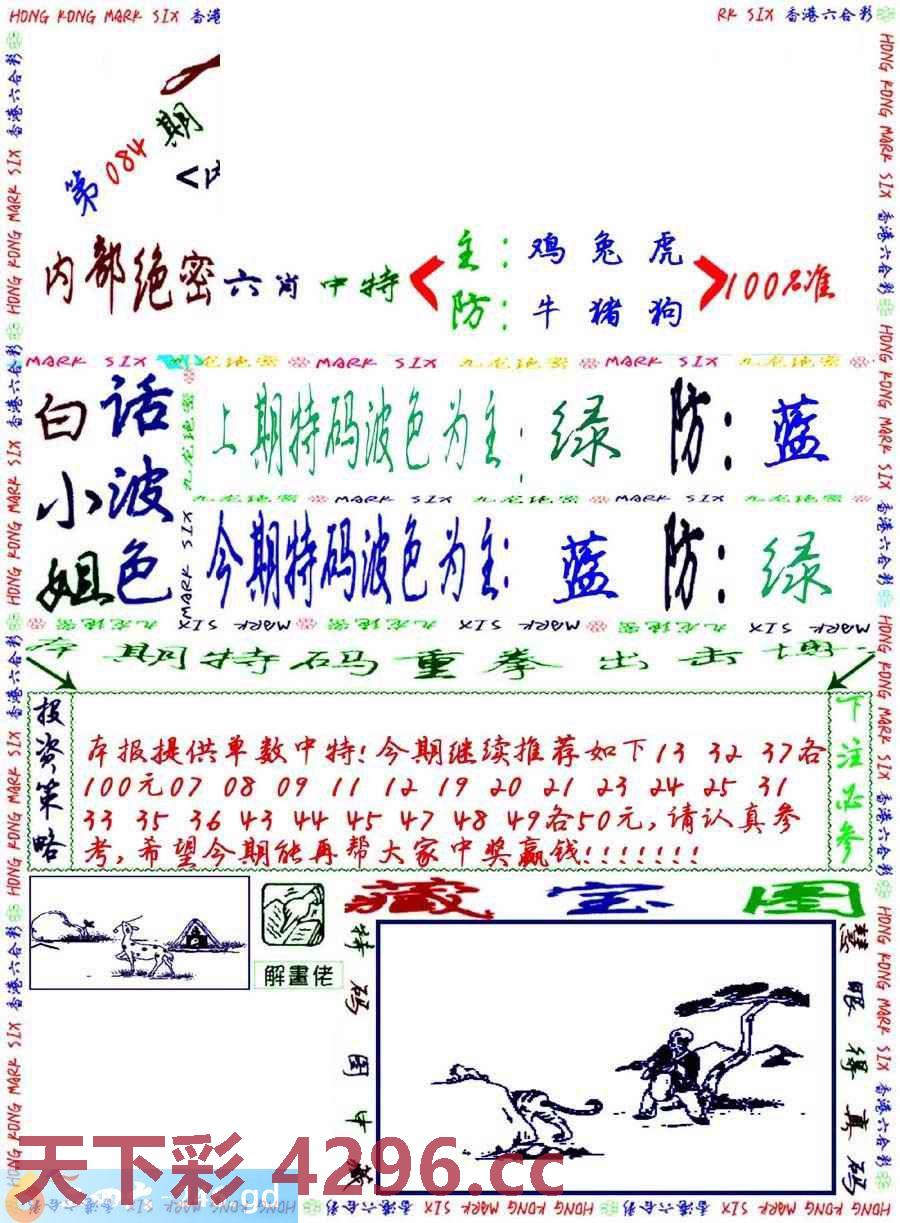 HONG KONG MARK SIX 香港
RK SIX 香港六合彩
第084期
内部绝密六肖中特
主：鸡兔虎
防：牛猪狗
100%准
MARK SIX 九龙绝密 MARK SIX 九龙绝密 MARK SIX 九龙绝密
白话
小波
姐色
上期特码波色为主：绿 防：蓝
九龙绝密 MARK SIX 九龙绝密 MARK SIX 九龙绝密
今期特码波色为主：蓝 防：绿
九龙绝密 MARK SIX 九龙绝密 MARK SIX 九龙绝密 MARK SIX
本期特码重拳出击
投资策略
本报提供单数中特!今期继续推荐如下13 32 37各
100元07 08 09 11 12 19 20 21 23 24 25 31
33 35 36 43 44 45 47 48 49各50元,请认真参
考,希望今期能再帮大家中奖赢钱!!!!!!!
下注必参
解畫佬
藏宝图
特码图中藏
慧眼得真码
天下彩 4296.cc
HONG KONG MARK SIX 香港六合彩